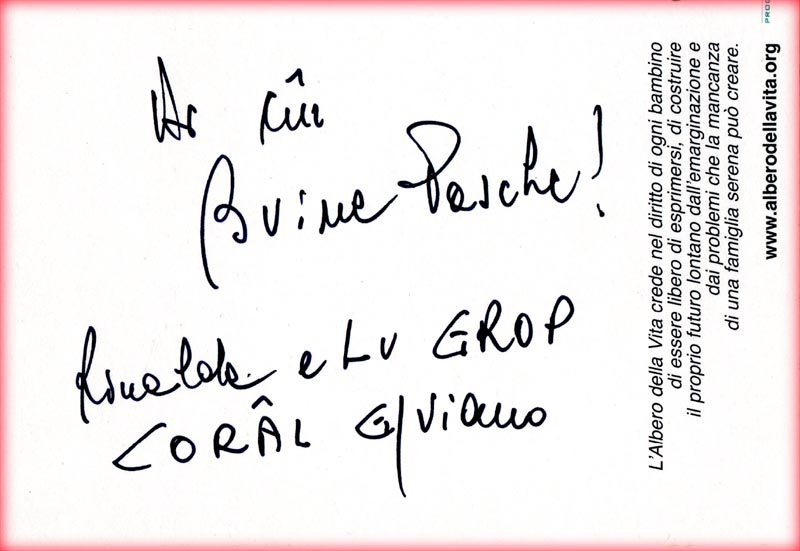 cûr
Buine Pasche!
Rinalda e Lu GROP
CORÂL Gjviano
L'Albero della Vita crede nel diritto di ogni bambino
di essere libero di esprimersi, di costruire
il proprio futuro lontano dall'emarginazione e
dai problemi che la mancanza
di una famiglia serena può creare.
www.alberodellavita.org